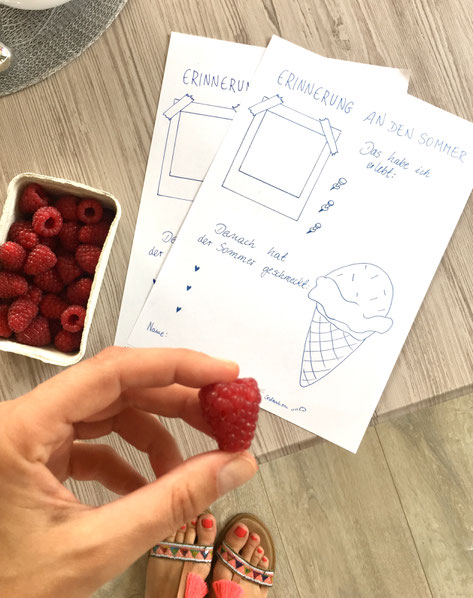 ERINNERUNG
ERINNERUNG AN DEN SOMMER
Das habe ich
erlebt:
Danach hat
der Sommer geschmeckt:
der
Name: